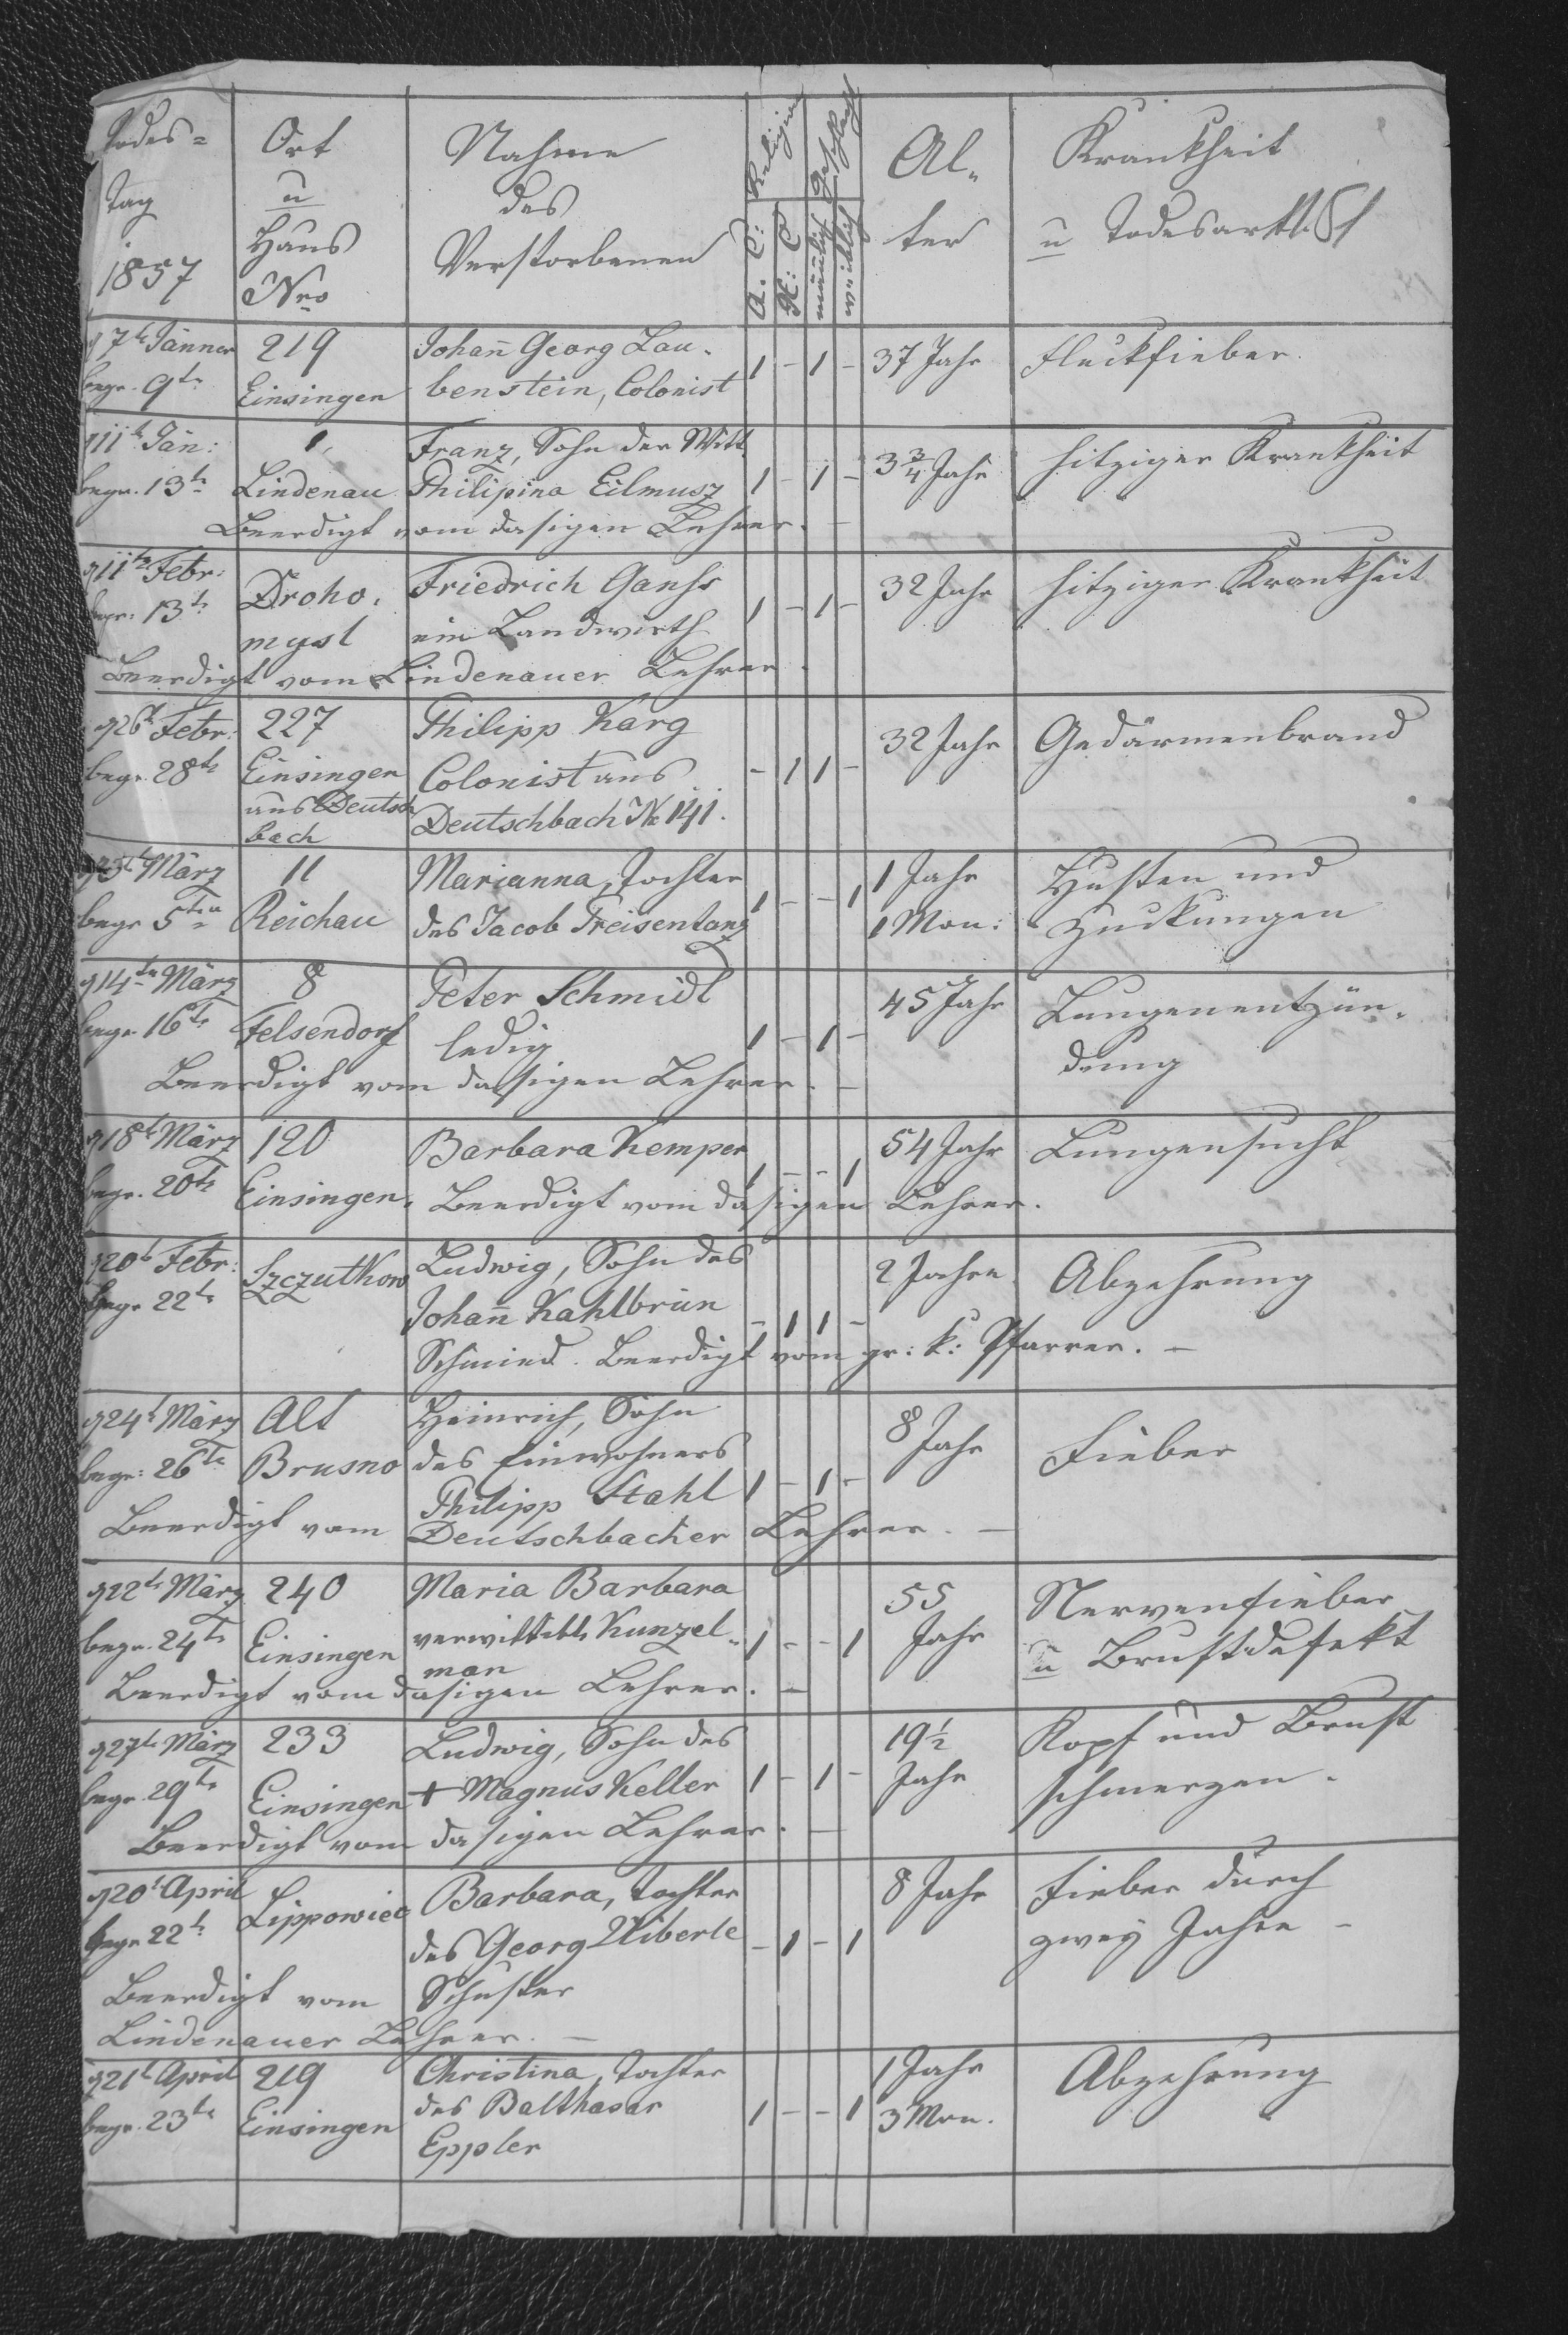 Todes= Ort Nahme Religion Geschlecht Al„ Krankheit
Tag u des ter u Todesart
1857 Haus Verstorbenen A. C: H: C männlich weiblich
Nro
7t Jänner 219 Johañ Georg Lau- 1 - 1 - 37 Jahr Fleckfieber.
begr. 9te Einsingen benstein, Colonist
11t Jän: 1, Franz, Sohn der Witt. 3 3/4 Jahr hitziger Krankheit
begr. 13te Lindenau Philipina Eilmusz 1 - 1 -
Beerdigt vom dasigen Lehrer. —
11te Febr: Droho- Friedrich Ganhs 32 Jahr hitziger Krankheit
begr: 13te mysl ein Landwirth 1 - 1 -
Beerdigt vom Lindenauer Lehrer.
26t Febr: 227 Philipp Karg 32 Jahr Gedärmenbrand
begr. 28te Einsingen Colonist aus - 1 1 -
aus Deutsch Deutschbach No 141.
bach
3t März 11 Marianna, Tochter 1 Jahr Husten und
begr 5ten Reichau des Jacob Preisentanz 1 - - 1 1 Mon: Zuckungen
14te März 8 Peter Schmidt 45 Jahr Lungenentzün-
begr. 16te Felsendorf ledig 1 - 1 - dung
Beerdigt vom dasigen Lehrer. —
18t März 120 Barbara Kemper 1 - - 1 54 Jahr Lungensucht
begr. 20te Einsingen. Beerdigt vom dasigen Lehrer.
20t Febr: Szczutkow Ludwig, Sohn des 2 Jahre Abzehrung
begr 22te Johañ Kahlbrün - 1 1 -
Schmied. Beerdigt vom gr: k: Pfarrer. —
24t März Alt Heinrich, Sohn 8 Jahr Fieber
begr: 26te Brusno des Einwohners
Philipp Stahl 1 - 1 -
Beerdigt vom Deutschbacher Lehrer. —
22te März 240 Maria Barbara 55 Nervenfieber
begr. 24te Einsingen Kunzel- 1 - - 1 Jahr u Brustdefekt
man
Beerdigt vom dasigen Lehrer. —
27te März 233 Ludwig, Sohn des 19 1/2 Kopf und Brust
begr. 29te Einsingen + Magnus Keller 1 - 1 - Jahr schmerzen.
Beerdigt vom dasigen Lehrer. —
20t April Lippowiec Barbara, Tochter 8 Jahr Fieber durch
begr 22te des Georg Uiberle - 1 - 1 zwey Jahre —
Beerdigt vom Schuster
Lindenauer Lehrer. —
21t April 219 Christina, Tochter 1 Jahr Abzehrung
begr. 23te Einsingen des Balthasar 1 - - 1 3 Mon.
Eppler